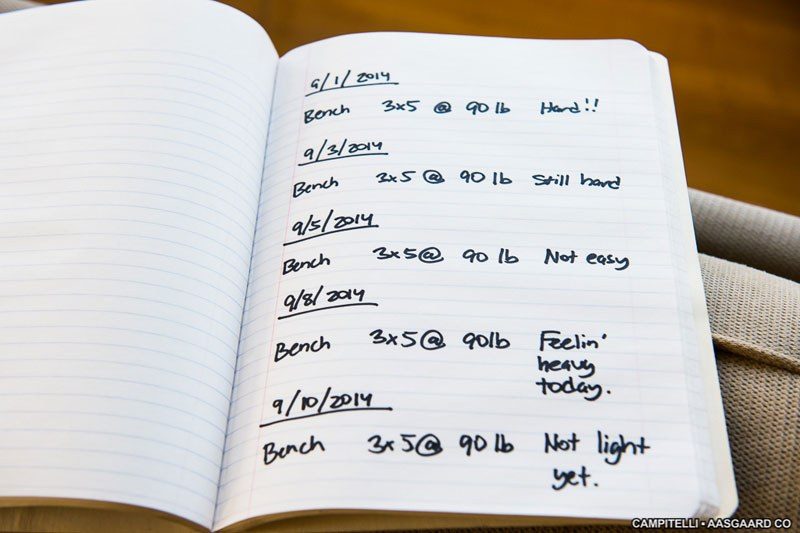 9/1/2014
Bench 3x5 @ 90 lb Hard!!
9/3/2014
Bench 3x5 @ 90 lb Still hard
9/5/2014
Bench 3x5 @ 90 lb Not easy
9/8/2014
Bench 3x5 @ 90lb Feelin'
heavy
today.
9/10/2014
Bench 3x5 @ 90 lb Not light
yet.
CAMPITELLI • AASGAARD CO